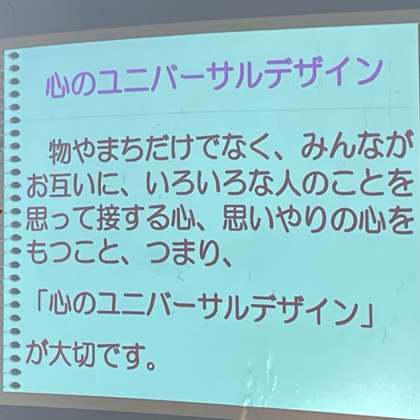 心のユニバーサルデザイン
物やまちだけでなく、みんなが
お互いに、いろいろな人のことを
思って接する心、思いやりの心を
もつこと、つまり、
「心のユニバーサルデザイン」
が大切です。